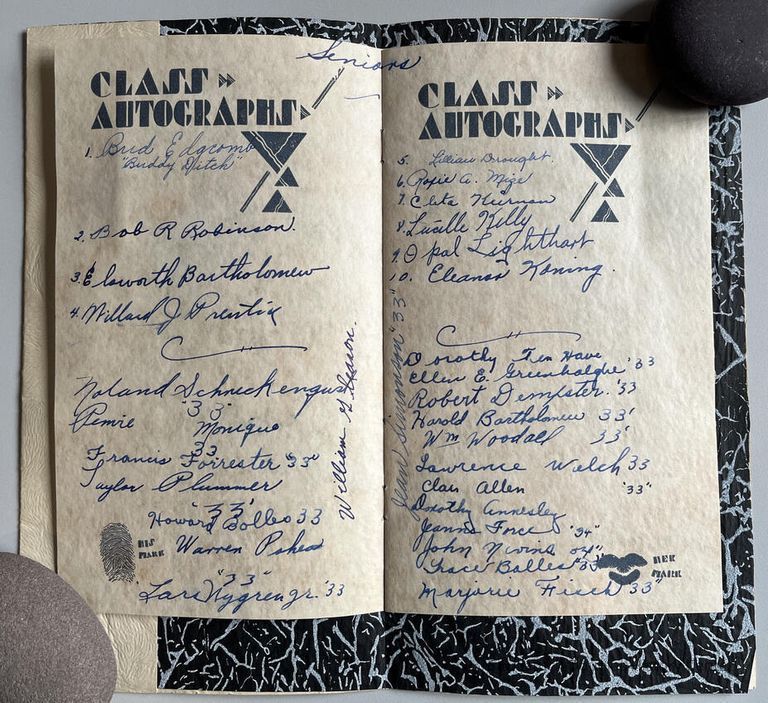 Seniors
CLASS
AUTOGRAPHS
1. Bud Edgcomb
"Buddy Dutch"
2. Bob R Robinson.
3. Elsworth Bartholomew
4. Willard J
Noland Schneckengust
'33'
Monique
'33
Francis Forrester "33"
Taylor Plummer
'33'
Howard Bolles 33
HIS MARK
Warren
"33"
Lars Nygren jr. '33
William G. Gleason.
CLASS
AUTOGRAPHS
5. Lillian Drought.
6. Rosie A. Mize
7. Cleta
8. Lucille Kelly
9. Opal Lighthart
10. Eleanor Koning.
Jean Simonson "33"
Dorothy Ten Have '33
Ellen E. Greenhalghe
Robert Dempster. '33
Harold Bartholomew 33'
Wm Woodall 33'
Lawrence Welch 33
Clair Allen "33"
Dorothy Annesley
Jeanne Force "34"
John Nivins
Grace Bolles "33
HER MARK
Marjorie Fisch "33"